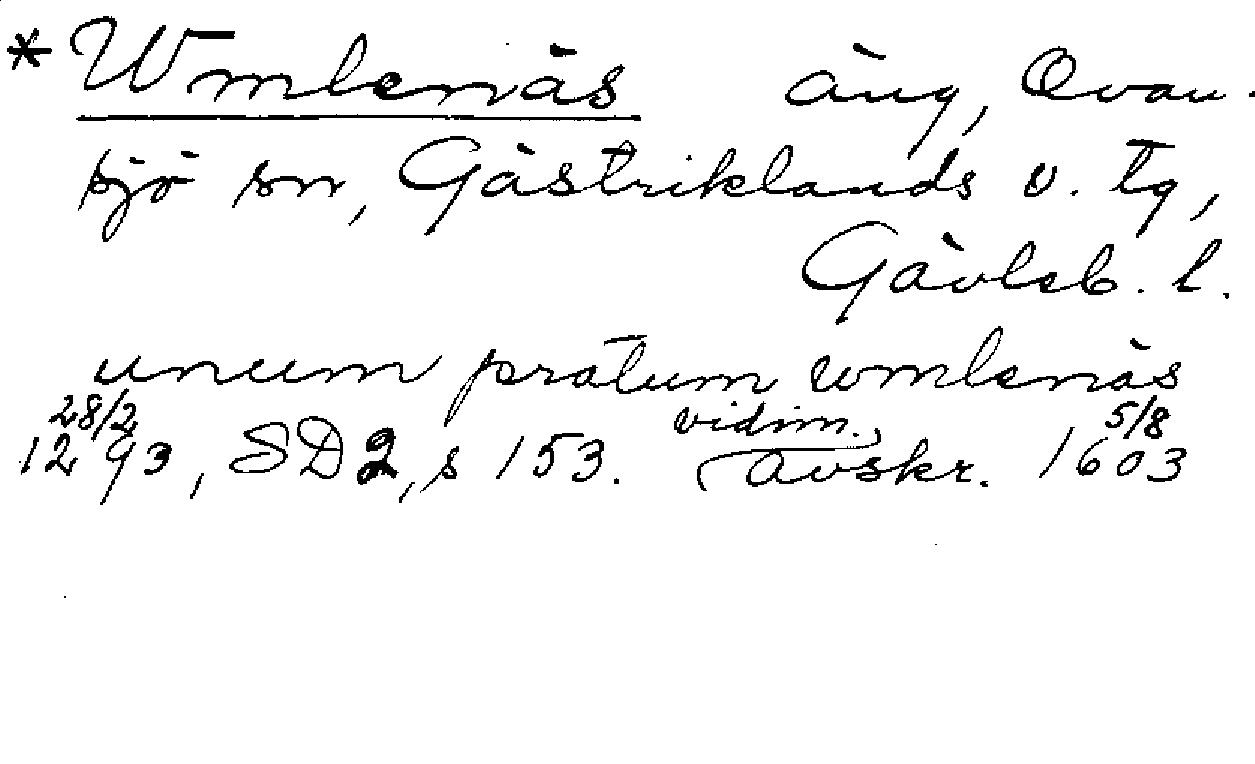 *Wmlenäs äng, Ovan-
sjö sn, Gästriklands v. tg,
Gävleb. l.
unum pratum wmlenäs
28/2 vidim. 5/8
1293, SD 2, s 153. (avskr. 1603